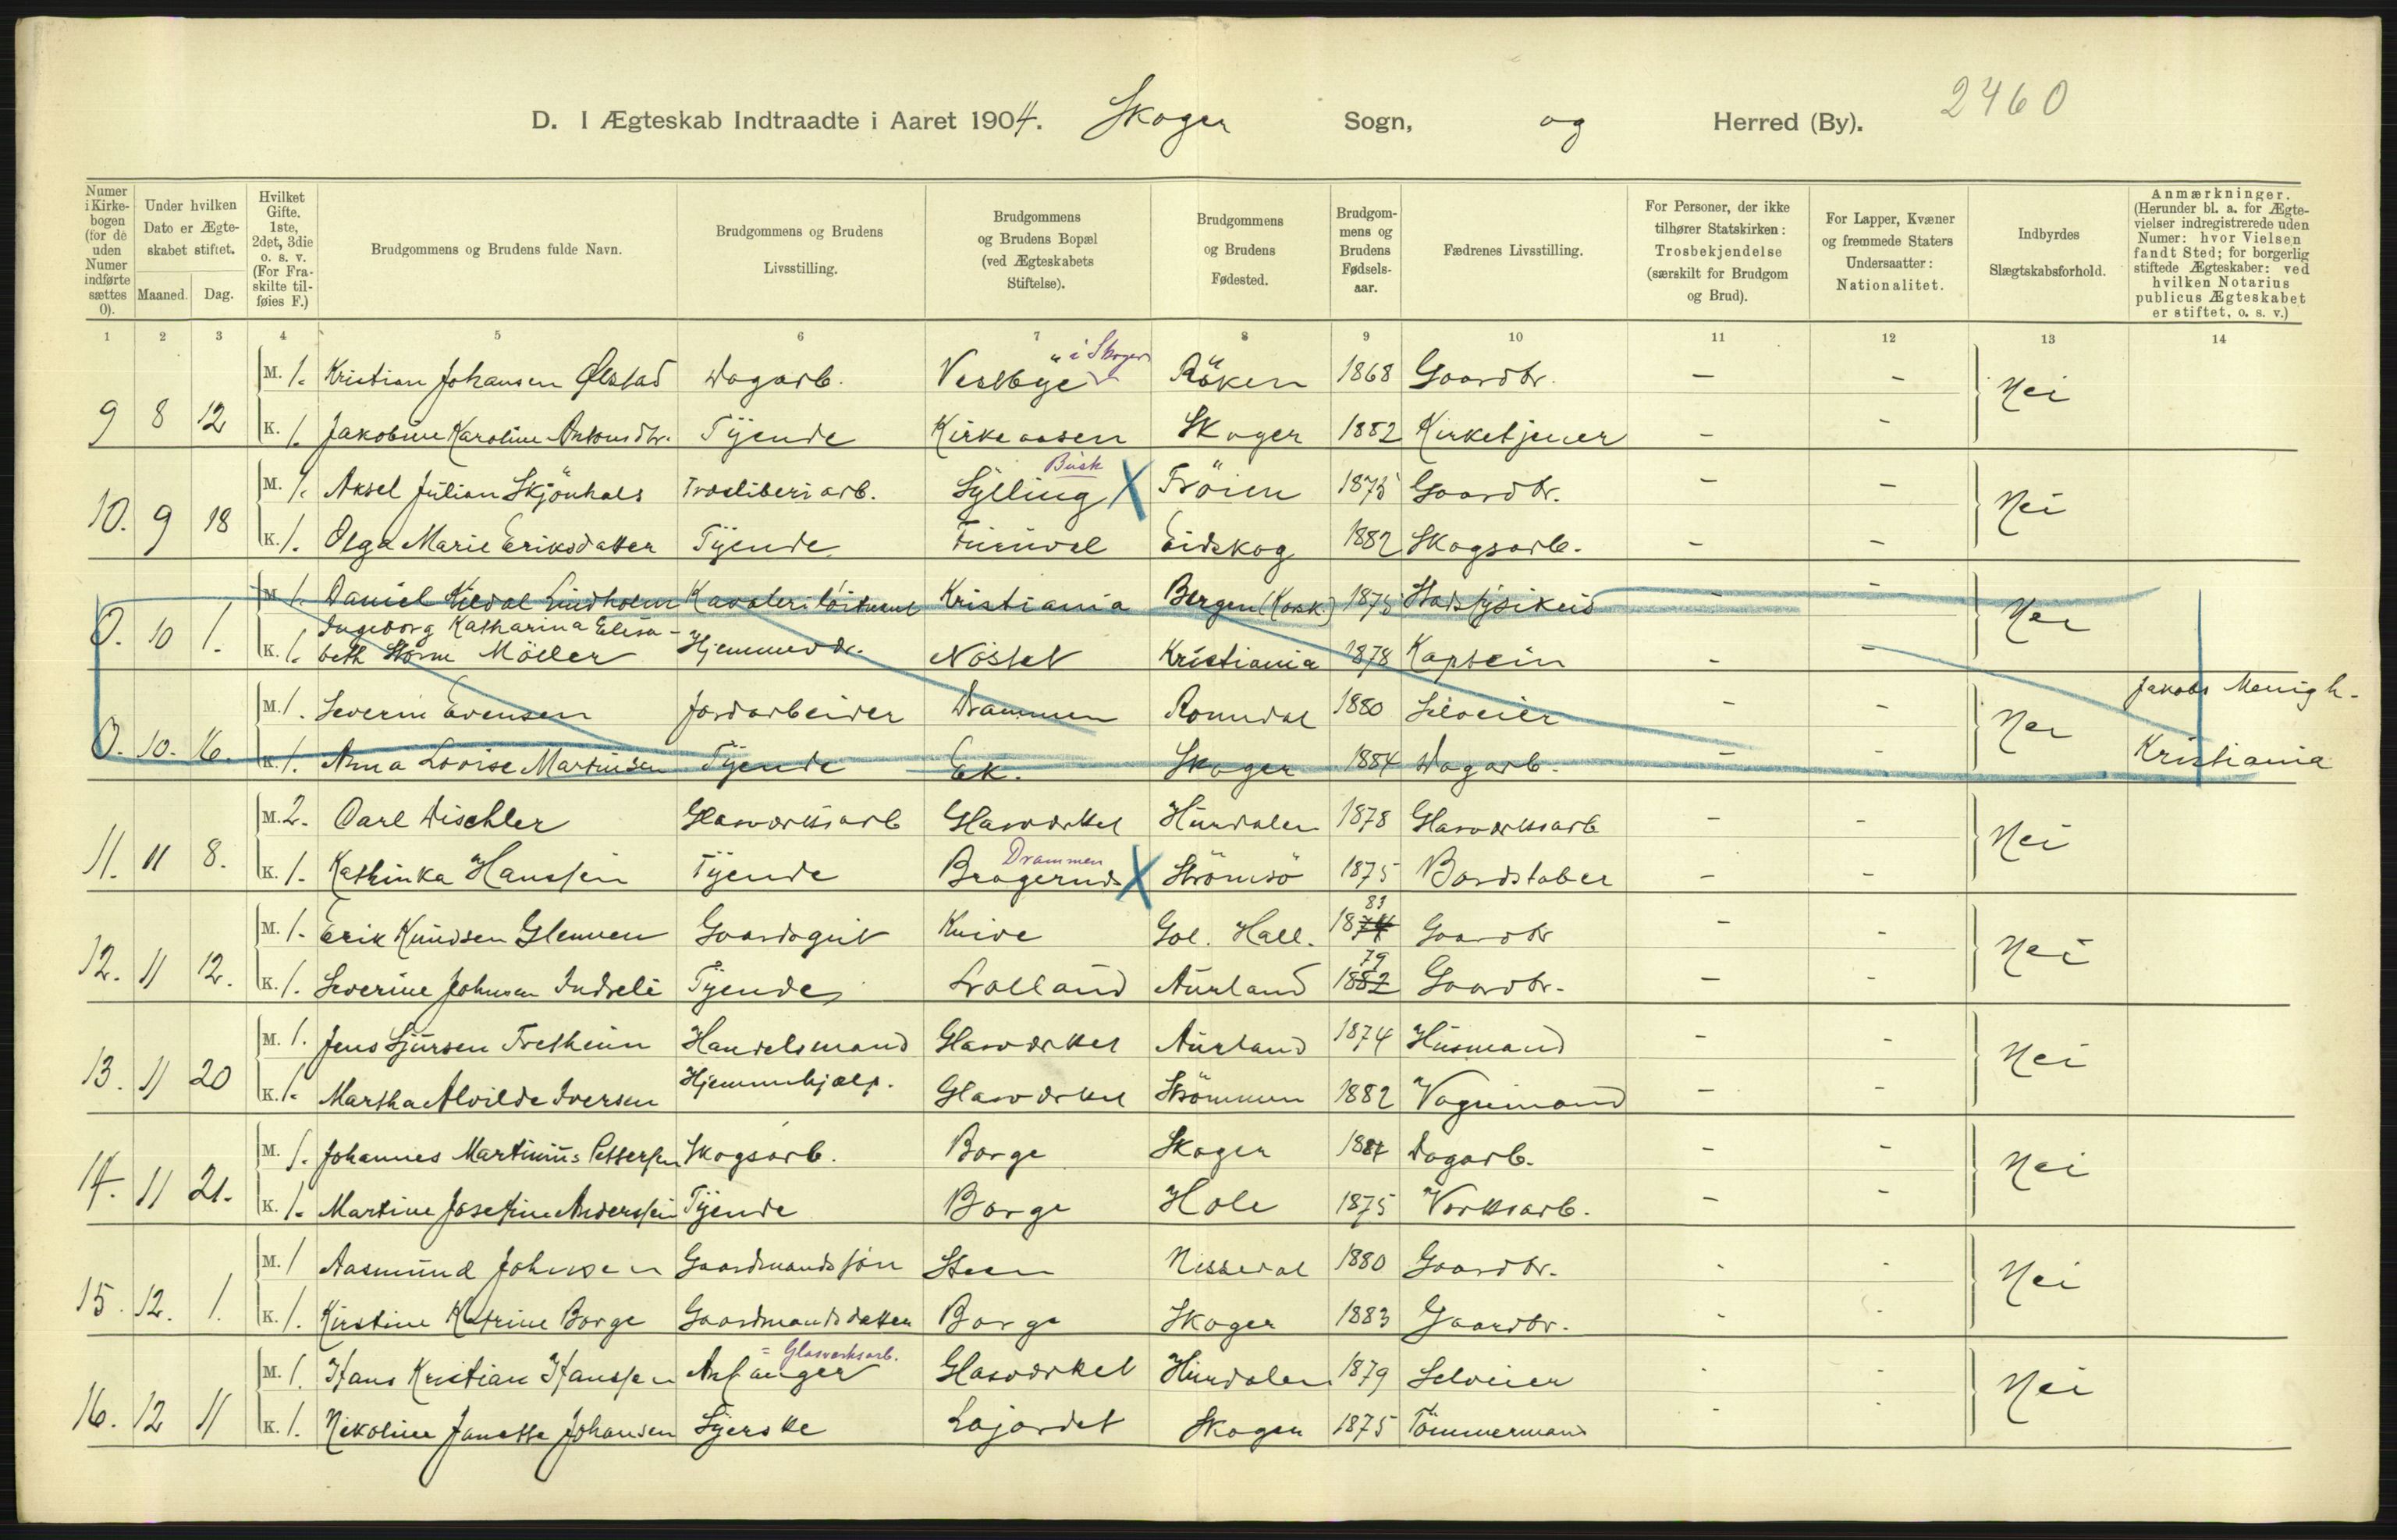 2460
D. I Ægteskab Indtraadte i Aaret 1904. Skoger Sogn, og Herred (By).
Numer i Kirkebogen (for de uden Numer indførte sættes 0).
Under hvilken Dato er Ægteskabet stiftet.
Maaned. Dag.
Hvilket Gifte. 1ste, 2det, 3die o. s. v. (For Fraskilte tilføies F.)
Brudgommens og Brudens fulde Navn.
Brudgommens og Brudens Livsstilling.
Brudgommens og Brudens Bopæl (ved Ægteskabets Stiftelse).
Brudgommens og Brudens Fødested.
Brudgommens og Brudens Fødselsaar.
Fædrenes Livsstilling.
For Personer, der ikke tilhører Statskirken: Trosbekjendelse (særskilt for Brudgom og Brud).
For Lapper, Kvæner og fremmede Staters Undersaatter: Nationalitet.
Indbyrdes Slægtskabsforhold.
Anmærkninger. (Herunder bl. a. for Ægtevielser indregistrerede uden Numer: hvor Vielsen fandt Sted; for borgerlig stiftede Ægteskaber: ved hvilken Notarius publicus Ægteskabet er stiftet, o. s. v.)
1 2 3 4 5 6 7 8 9 10 11 12 13 14
"i Skoger
M. 1. Kristian Johansen Ølstad Dagarb. Vestbye Röken 1868 Gaardbr. - -
9 8 12 Nei
K. 1. Jakobine Karoline Antonsdtr. Tjende Kirkeaasen Skoger 1882 Kirketjener - -
Busk
M. 1. Aksel Julian Skjönhals Træsliberiarb. Sylling X Tröien 1875 Gaardbr. - -
10. 9 18 Nei
K. 1. Olga Marie Eriksdatter Tjende Eidskog 1882 Skogsarb. - -
M. 1. Daniel Kildal Lindholm Kavaleriløitnant Kristiania Bergen (Kask.) 1875 Stadsfysikus - -
0. 10 1. Nei
Ingeborg Katharina Elisa-
K. 1. beth Storm Möller Hjemmevær. Nösset Kristiania 1878 Kaptein - -
M. 1. Severin Evensen Jordarbeider Drammen Romedal 1880 Selveier - - Jakobs Menigh.
0. 10. 16. Nei
K. 1. Anna Lovise Martinsen Tjende Ek. Skoger 1884 Dagarb. - - Kristiania
M. 2. Carl Dischler Glasværksarb Glasværket Hurdalen 1878 Glasværksarb - -
11. 11 8. Nei
Drammen
K. 1. Kathinka Hanssen Tjende Bragernds X Strömsö 1875 Bordstabler - -
83
M. 1. Erik Knudsen Glemmen Gaardsgut Knive Gol. Hall. 1874 Gaardbr - -
12. 11 12. Nei
79
K. 1. Severine Johnsen Indreli Tjende Lolland Aurland 1882 Gaardbr. - -
M. 1. Jens Sjursen Tretheim Handelsmand Glasværket Aurland 1874 Husmand - -
13. 11 20 Nei
K. 1. Martha Alvilde Iversen Hjemmehjælp. Glasværket Strömmen 1882 Vognmand - -
M. 1. Johannes Martinius Pettersen Skogsarb. Borge Skoger 1884 Dagarb. - -
14. 11 21. Nei
K. 1. Martine Josefine Anderssen Tjende Borge Hole 1875 Værksarb. - -
M. 1 Aasmund Johnsen Gaardmandssøn Steen Nissedal 1880 Gaardbr. - -
15. 12. 1. Nei
K. 1. Kirstine Katrine Borge Gaardmandsdatter Borge Skoger 1883 Gaardbr. - -
= Glasværksarb.
M. 1. Hans Kristian Hanssen Anfanger Glasværket Hurdalen 1879 Selveier - -
16. 12 11 Nei
K. 1. Nikoline Janette Johansen Syerske Løjordet Skoger 1875 Tömmermand - -